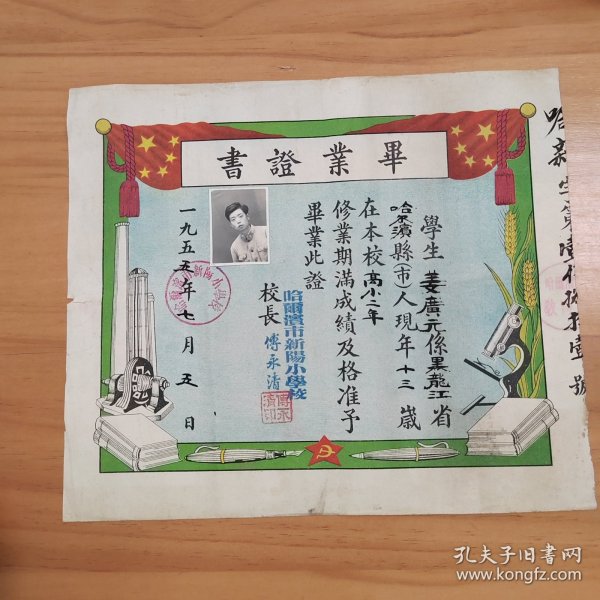 畢業證書
學生姜廣元係黑龍江省
哈尔濱縣(市)人現年十三歲
在本校高小二年
修業期滿成績及格准予
畢業此證
校長傅永清
哈爾濱市新陽小學校
傅永清印
一九五五年七月五日
孔夫子旧书网
www.kongfz.com